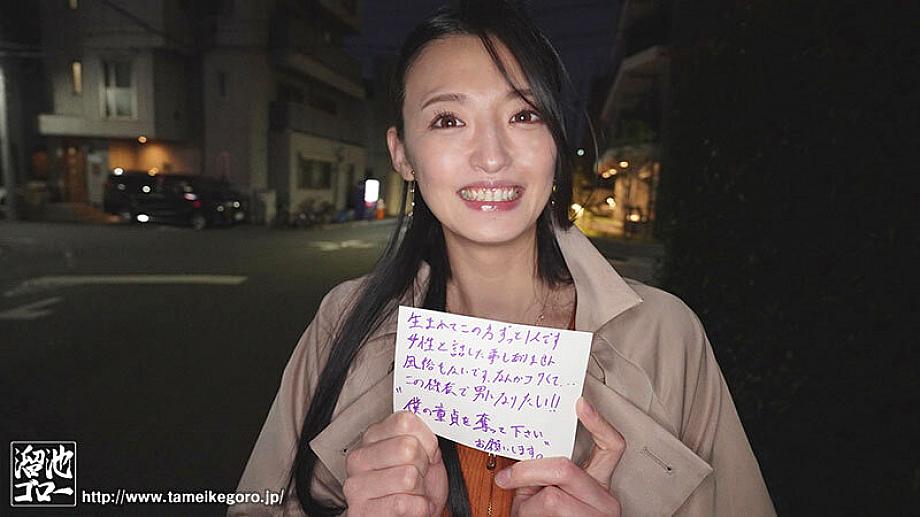 生まれてこの方ずっと1人です
女性と話した事もありません
風俗もないです、なんかコワくて...
この撮影で男になりたい!!
"僕の童貞を奪って下さい"
お願いします。
溜池
ゴロー
http://www.tameikegoro.jp/